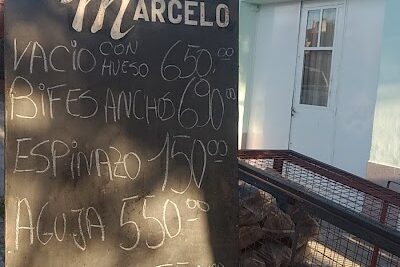 MARCELO
VACIO CON HUESO 650.00
BIFES ANCHOS 690.00
ESPINAZO 150.00
AGUJA 550.00